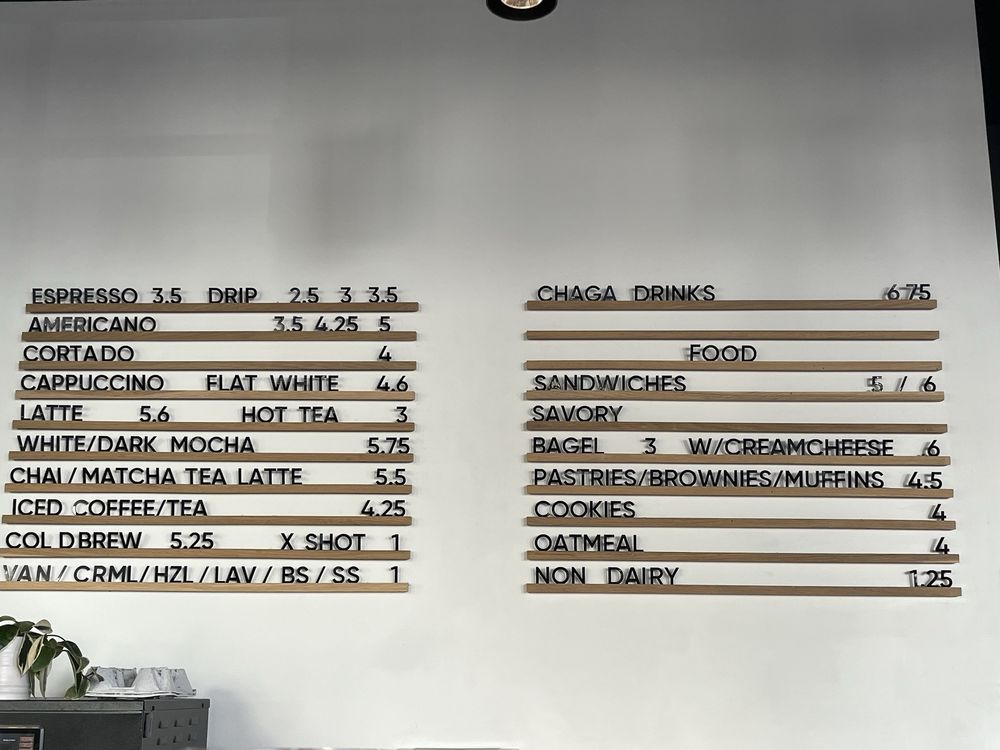 ESPRESSO 3.5 DRIP 2.5 3 3.5
AMERICANO 3.5 4.25 5
CORTADO 4
CAPPUCCINO FLAT WHITE 4.6
LATTE 5.6 HOT TEA 3
WHITE/DARK MOCHA 5.75
CHAI/MATCHA TEA LATTE 5.5
ICED COFFEE/TEA 4.25
COLDBREW 5.25 X SHOT 1
VAN/CRML/HZL/LAV/BS/SS 1
CHAGA DRINKS 6 75
FOOD
SANDWICHES 5 / 6
SAVORY
BAGEL 3 W/CREAMCHEESE 6
PASTRIES/BROWNIES/MUFFINS 4.5
COOKIES 4
OATMEAL 4
NON DAIRY 1.25